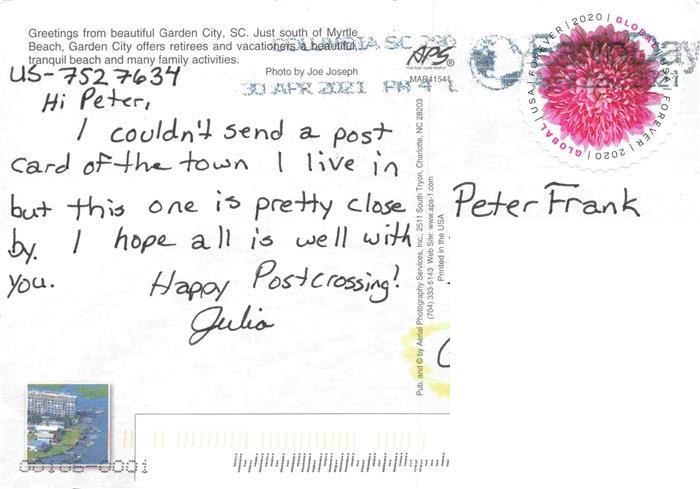 Greetings from beautiful Garden City, SC. Just south of Myrtle
Beach, Garden City offers retirees and vacationers a beautiful,
tranquil beach and many family activities.
Photo by Joe Joseph
APS
MAR41541
COLUMBIA SC 290
30 APR 2021 PM 4 L
GLOBAL | USA | FOREVER | 2020 | GLOBAL | USA | FOREVER | 2020 |
US-7527634
Hi Peter,
I couldn't send a post
card of the town I live in
but this one is pretty close
by. I hope all is well with
you.
Happy Postcrossing!
Julia
Peter Frank
Pub. and © by Aerial Photography Services, Inc., 2511 South Tryon, Charlotte, NC 28203
(704) 333-5143 Web Site: www.aps-1.com
Printed in the USA
00106-0001